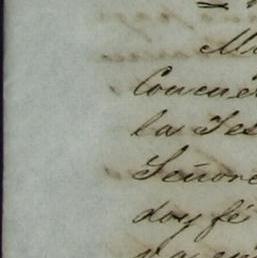 Ma
Concue
la Tes
Señore
doy fé